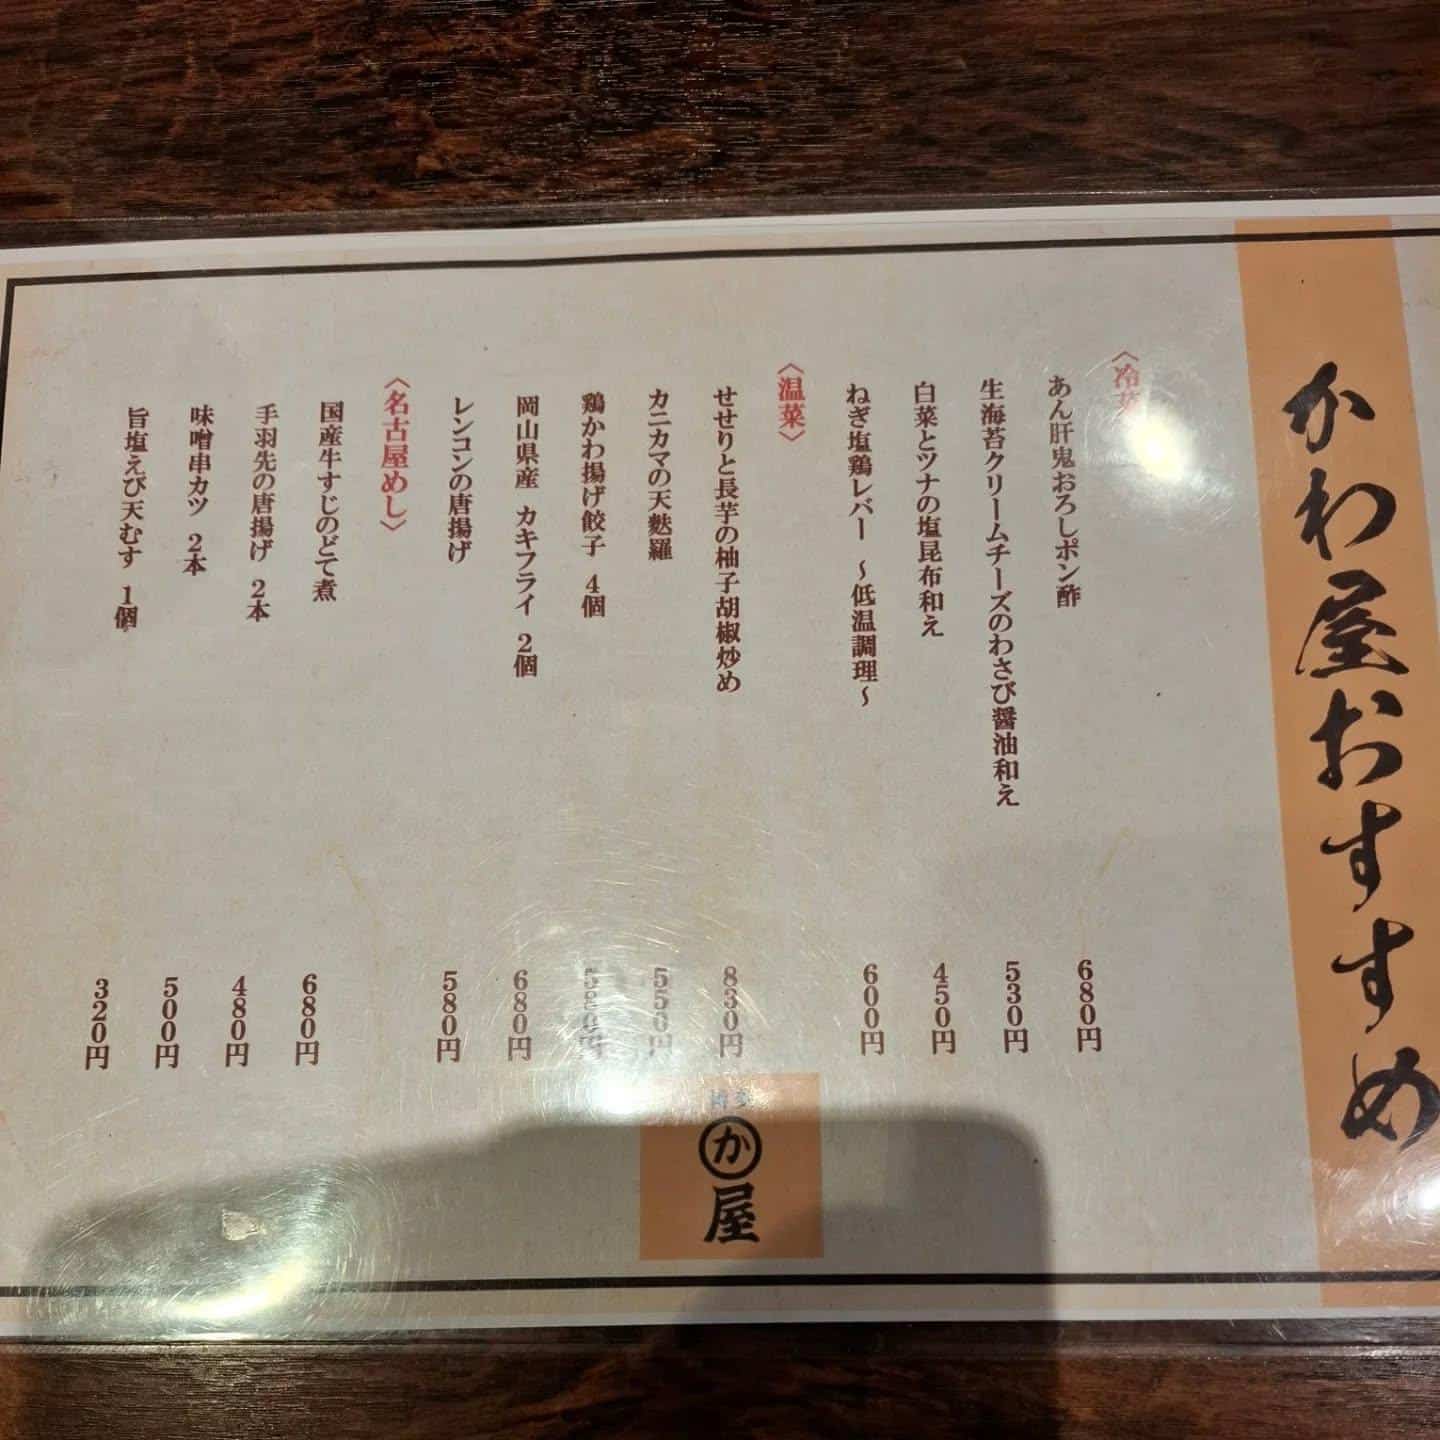 かわ屋おすすめ
〈冷菜〉
あん肝鬼おろしポン酢 680円
生海苔クリームチーズのわさび醤油和え 530円
白菜とツナの塩昆布和え 450円
ねぎ塩鶏レバー 〜低温調理〜 600円
〈温菜〉
せせりと長芋の柚子胡椒炒め 830円
カニカマの天麩羅 550円
鶏かわ揚げ餃子 4個 580円
岡山県産 カキフライ 2個 680円
レンコンの唐揚げ 580円
〈名古屋めし〉
国産牛すじのどて煮 680円
手羽先の唐揚げ 2本 480円
味噌串カツ 2本 500円
旨塩えび天むす 1個 320円
博多
か
屋